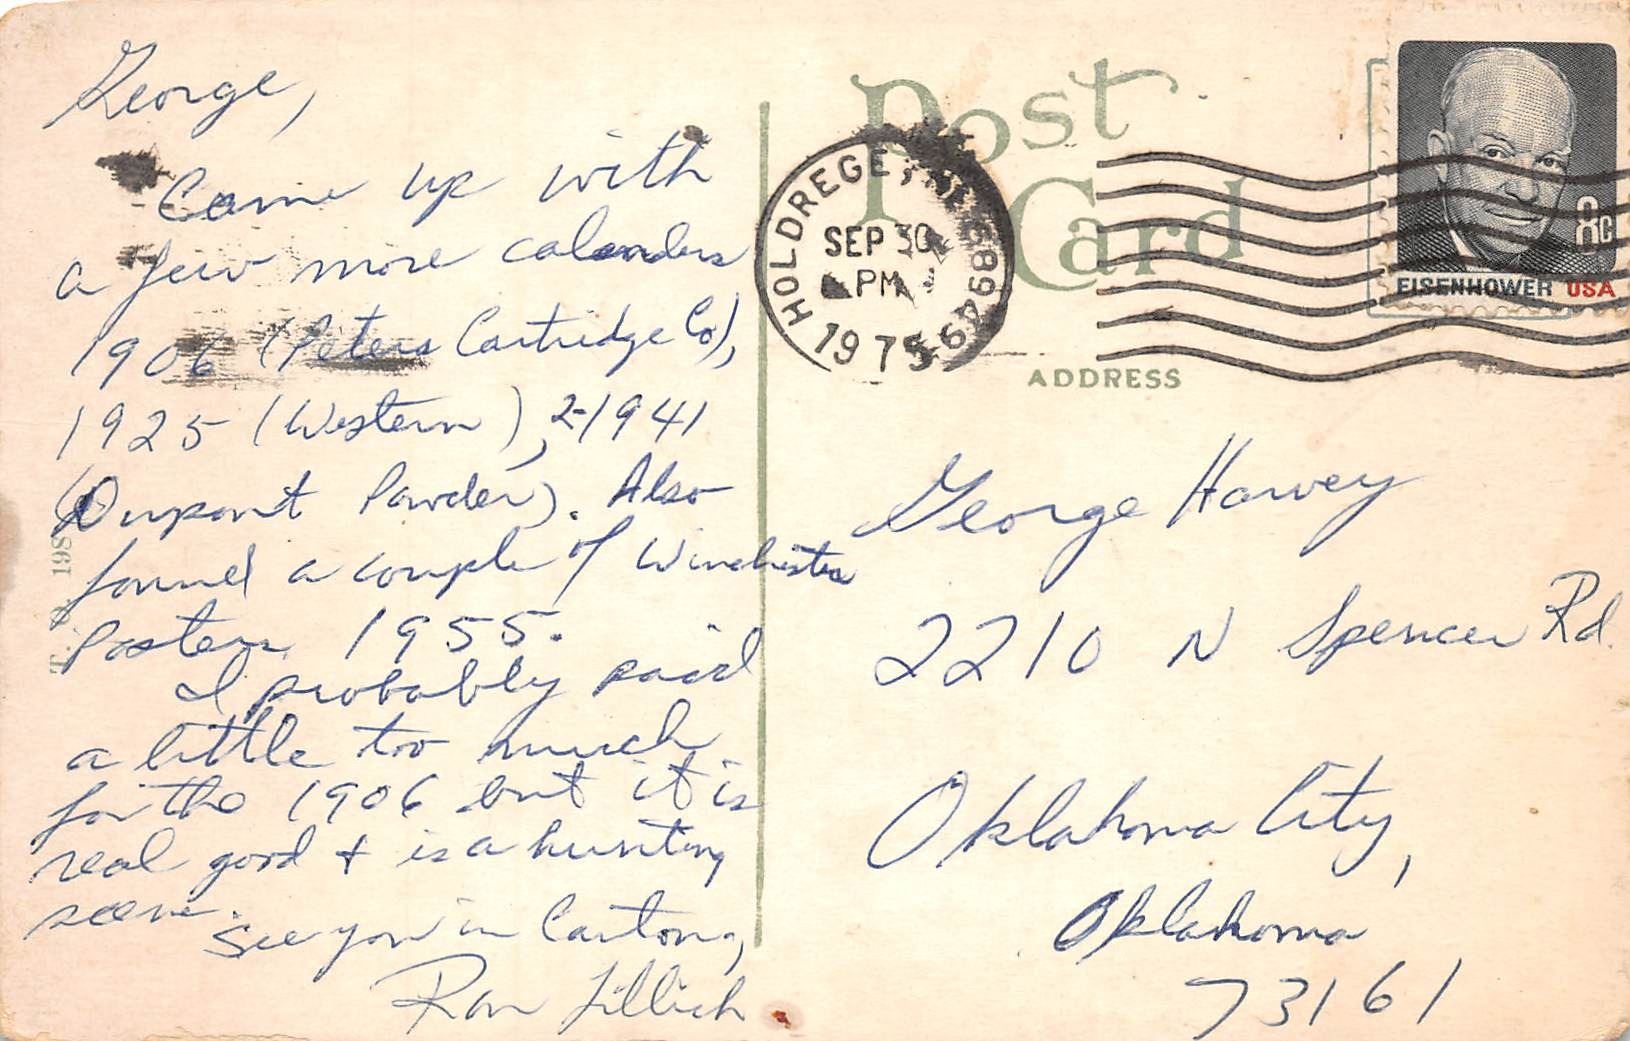 George,
Came up with
a few more calendars
1906 (Peters Cartridge Co),
1925 (Western), 2-1941
(Dupont Powder). Also
found a couple of Winchester
Posters 1955.
I probably paid
a little too much
for the 1906 but it is
real good & is a hunting
scene.
See you in
Ron
T. P. 198
Post
Card
HOLDREGE, NE 68949
SEP 30
PM
1975
EISENHOWER USA
8c
ADDRESS
George Harvey
2210 N Spencer Rd.
Oklahoma City,
Oklahoma
73161